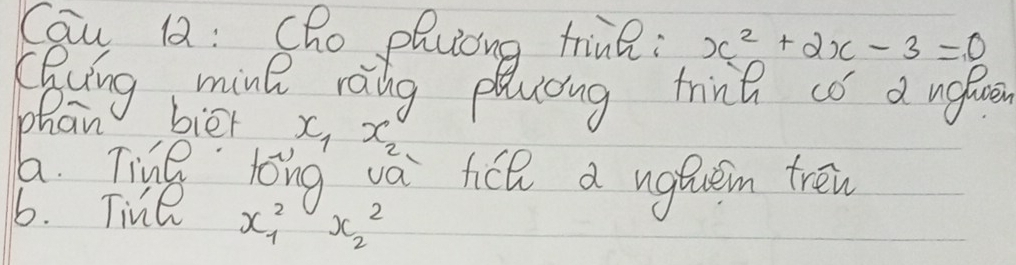 Câu 12: Cho phương trình: x² + 2x - 3 = 0
Chứng minh rằng phương trình có 2 nghiệm
phân biệt x₁ x₂
a. Tính tổng và tích 2 nghiệm trên
b. Tính x₁² x₂²